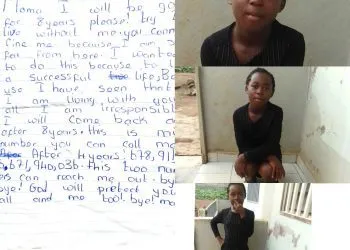 I will be 99
for 8 years please! try
live without me you cann
fine me because I am s
far from here I wanted
to do this because to l
a successful life, Be
use I have seen that
I am living with yo
all I am irresponsib
I will come back a
after 8 years. this is mi
number you can call me
After 4 years! 678,911
0,671,940,036. this two nu
ers can reach me out. by
bye! God will protect yo
all and me too! bye! mo